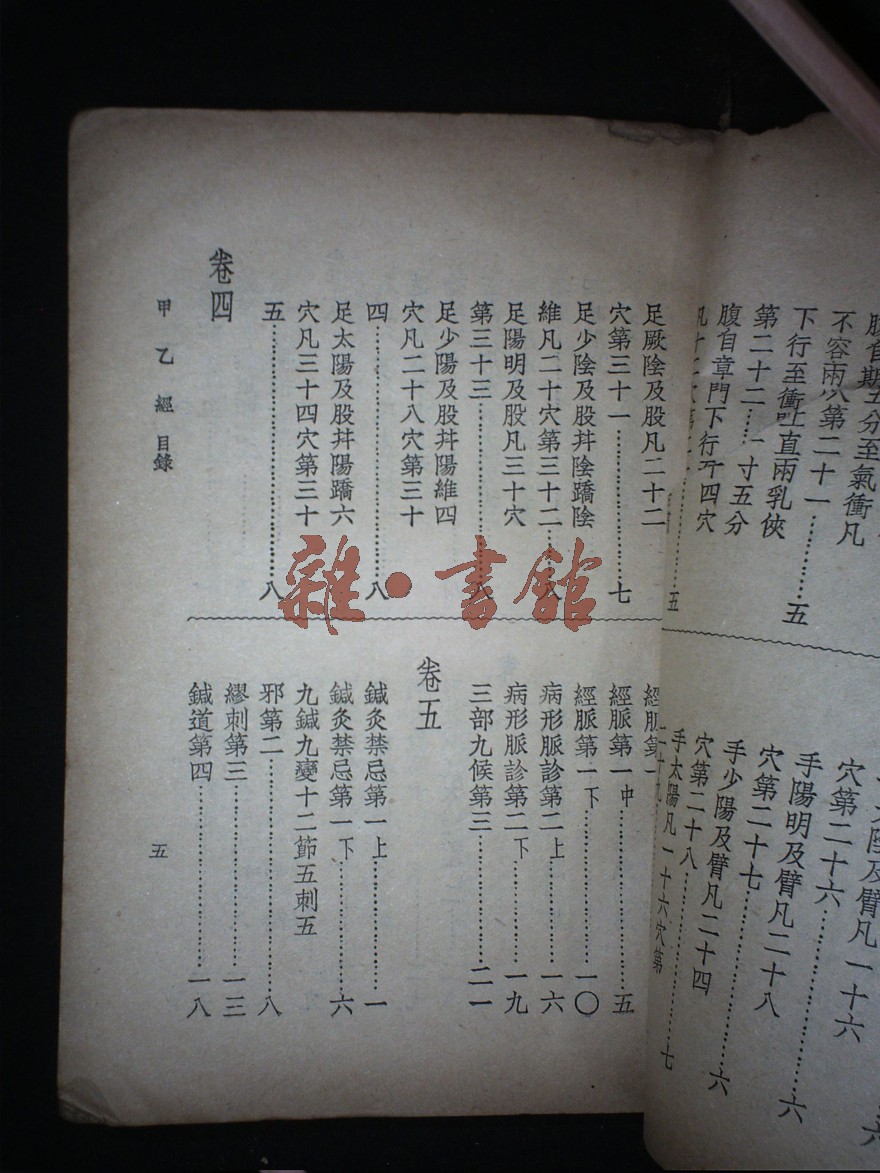 五分至氣衝凡
第二十一…………五
下行至衝
直兩乳俠
第二十二……一寸五分
腹自章門下行
四穴
…………五
及臂凡一十六
穴第二十六…………六
手陽明及臂凡二十八
穴第二十七…………六
手少陽及臂凡二十四
穴第二十八…………六
手太陽凡一十六穴第
…………七
足厥陰及股凡二十二
穴第三十一…………七
足少陰及股幷陰蹻陰
維凡二十穴第三十二…………八
足陽明及股凡三十穴
第三十三…………八
足少陽及股幷陽維四
穴凡二十八穴第三十
四…………八
足太陽及股幷陽蹻六
穴凡三十四穴第三十
五…………八
卷四
經脈第一
經脈第一中…………五
經脈第一下…………一〇
病形脈診第二上…………一六
病形脈診第二下…………一九
三部九候第三…………二一
卷五
鍼灸禁忌第一上…………一
鍼灸禁忌第一下…………六
九鍼九變十二節五刺五
邪第二…………八
繆刺第三…………一三
鍼道第四…………一八
甲乙經 目錄
五
雜·書館